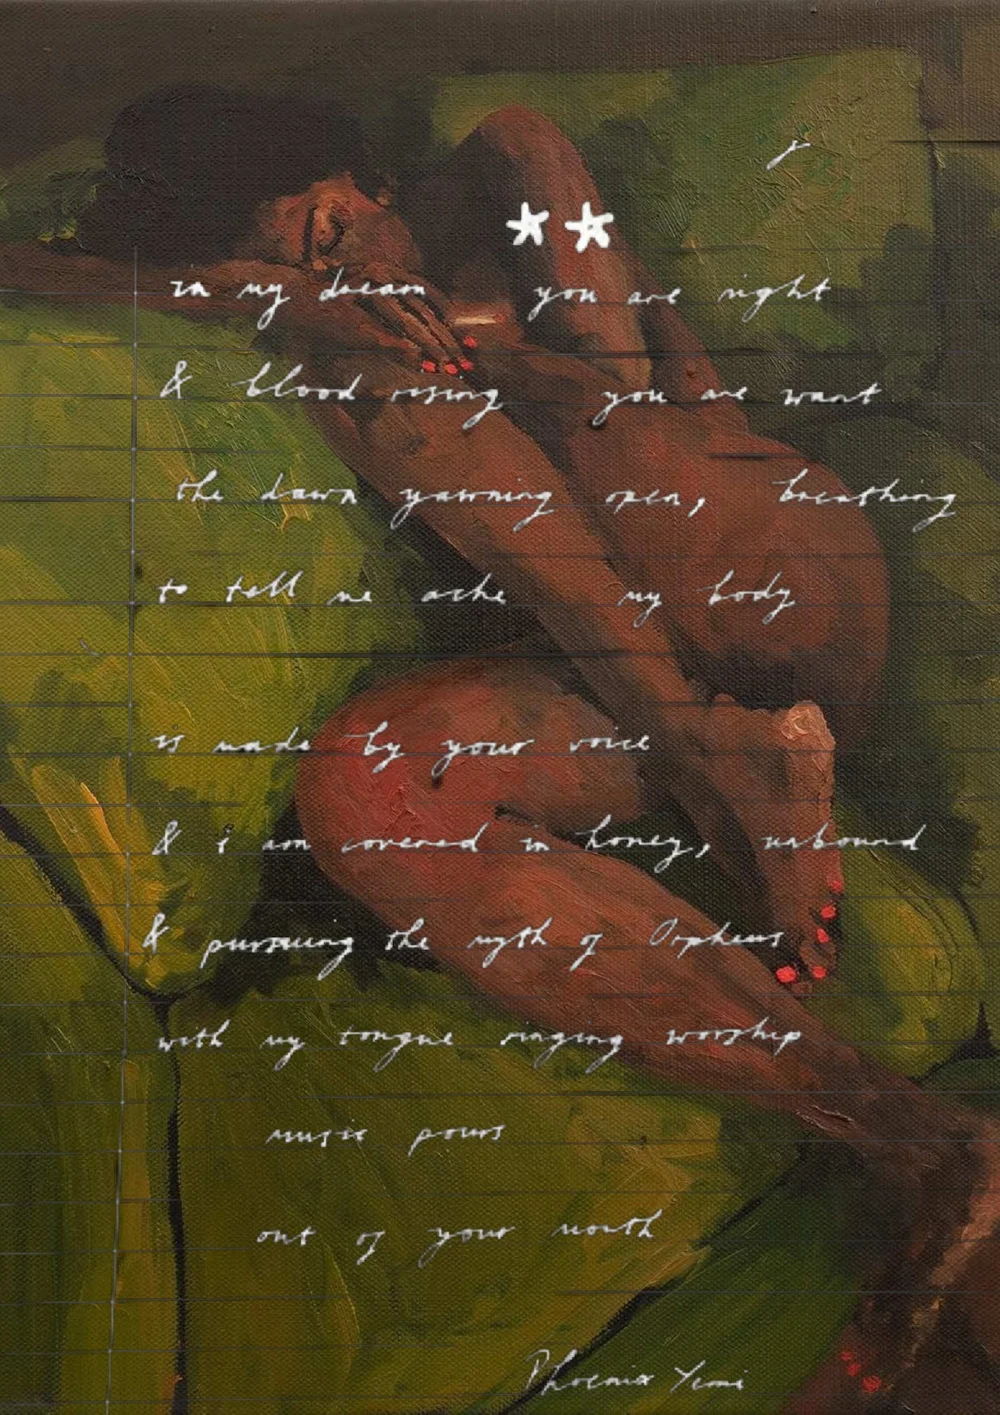 **
in my dream you are right
& blood rising you are want
the dawn yawning open, breathing
to tell me ache my body
is made by your voice
& i am covered in honey, unbound
& pursuing the myth of Orpheus
with my tongue singing worship
music pours
out of your mouth
Phoenix Yemi